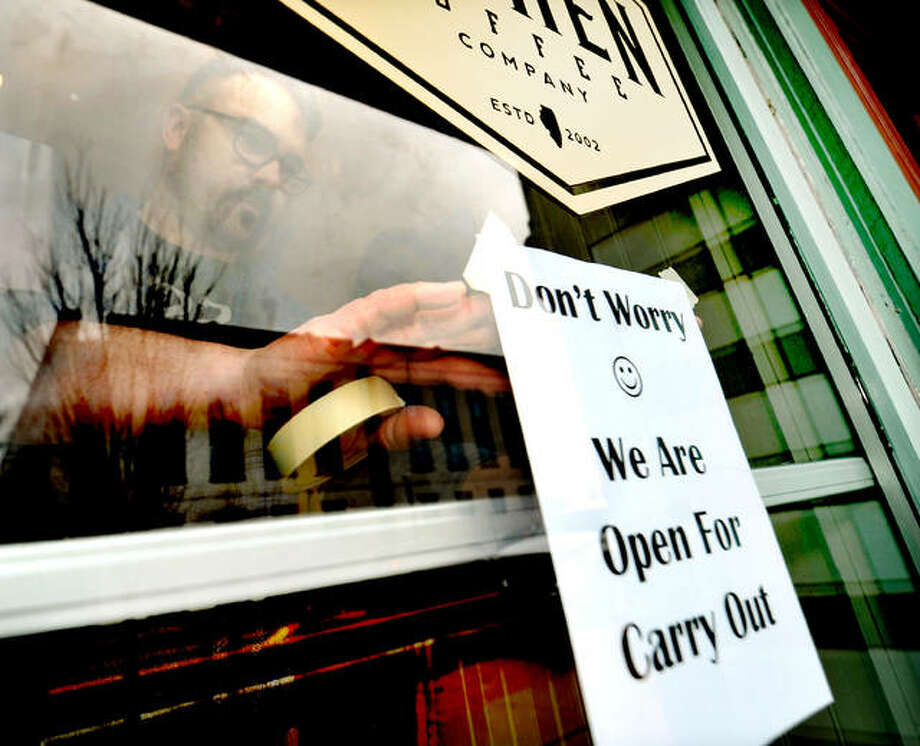 COFFEE
COMPANY
ESTD 2002
Don't Worry
We Are
Open For
Carry Out